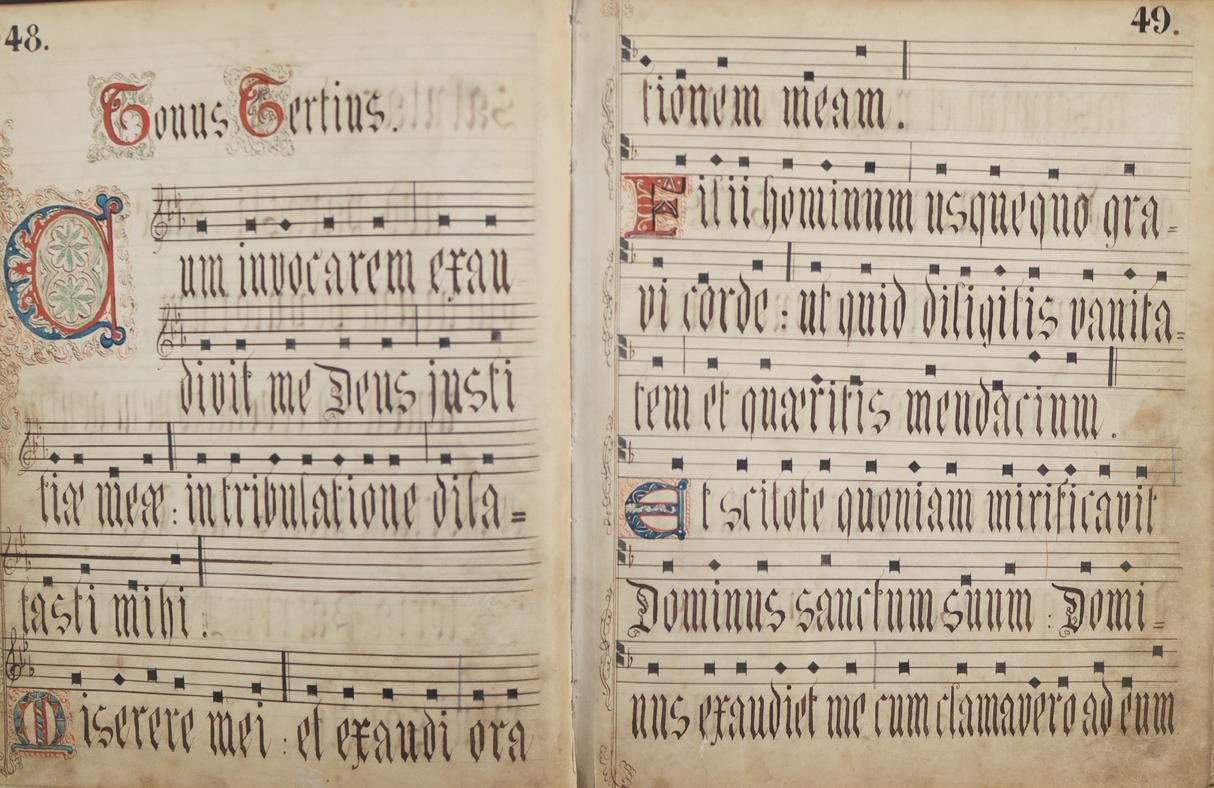 48.
Tonus Tertius.
Cum invocarem exau
divit me Deus justi
tiæ meæ : in tribulatione dila=
tasti mihi.
Miserere mei : et exaudi ora
49.
tionem meam.
Filii hominum usquequo gra=
vi corde : ut quid diligitis vanita=
tem et quæritis mendacium.
Et scitote quoniam mirificavit
Dominus sanctum suum : Domi=
nus exaudiet me cum clamavero ad eum